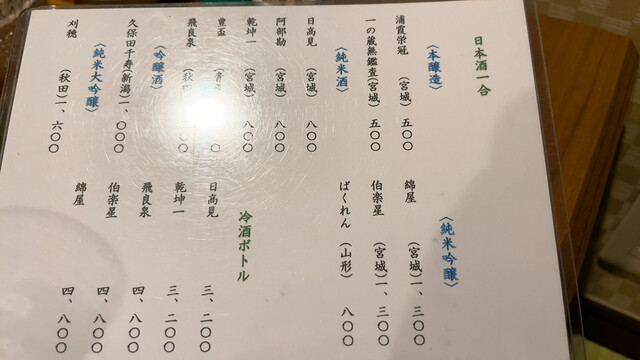 日本酒一合
〈本醸造〉
浦霞栄冠 (宮城) 五〇〇
一の蔵無鑑査(宮城) 五〇〇
〈純米酒〉
日高見 (宮城) 八〇〇
阿部勘 (宮城) 八〇〇
乾坤一 (宮城) 八〇〇
豊盃
飛良泉 (秋田
〈吟醸酒〉
久保田千寿(新潟)一、〇〇〇
〈純米大吟醸〉
刈穂 (秋田)一、六〇〇
〈純米吟醸〉
綿屋 (宮城)一、三〇〇
伯楽星 (宮城)一、三〇〇
ばくれん (山形) 八〇〇
冷酒ボトル
日高見 三、二〇〇
乾坤一 三、二〇〇
飛良泉 四、八〇〇
伯楽星 四、八〇〇
綿屋 四、八〇〇